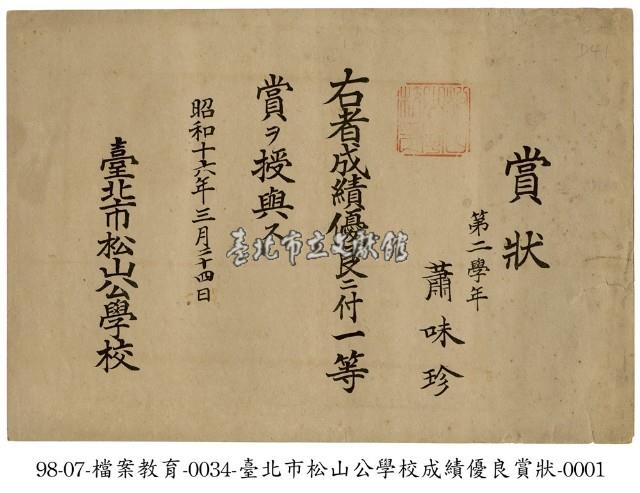 賞狀
第二學年
蕭味珍
右者成績優良ニ付一等
賞ヲ授與ス
昭和十六年三月二十四日
臺北市松山公學校
臺北市立文獻館
D41
98-07-檔案教育-0034-臺北市松山公學校成績優良賞狀-0001